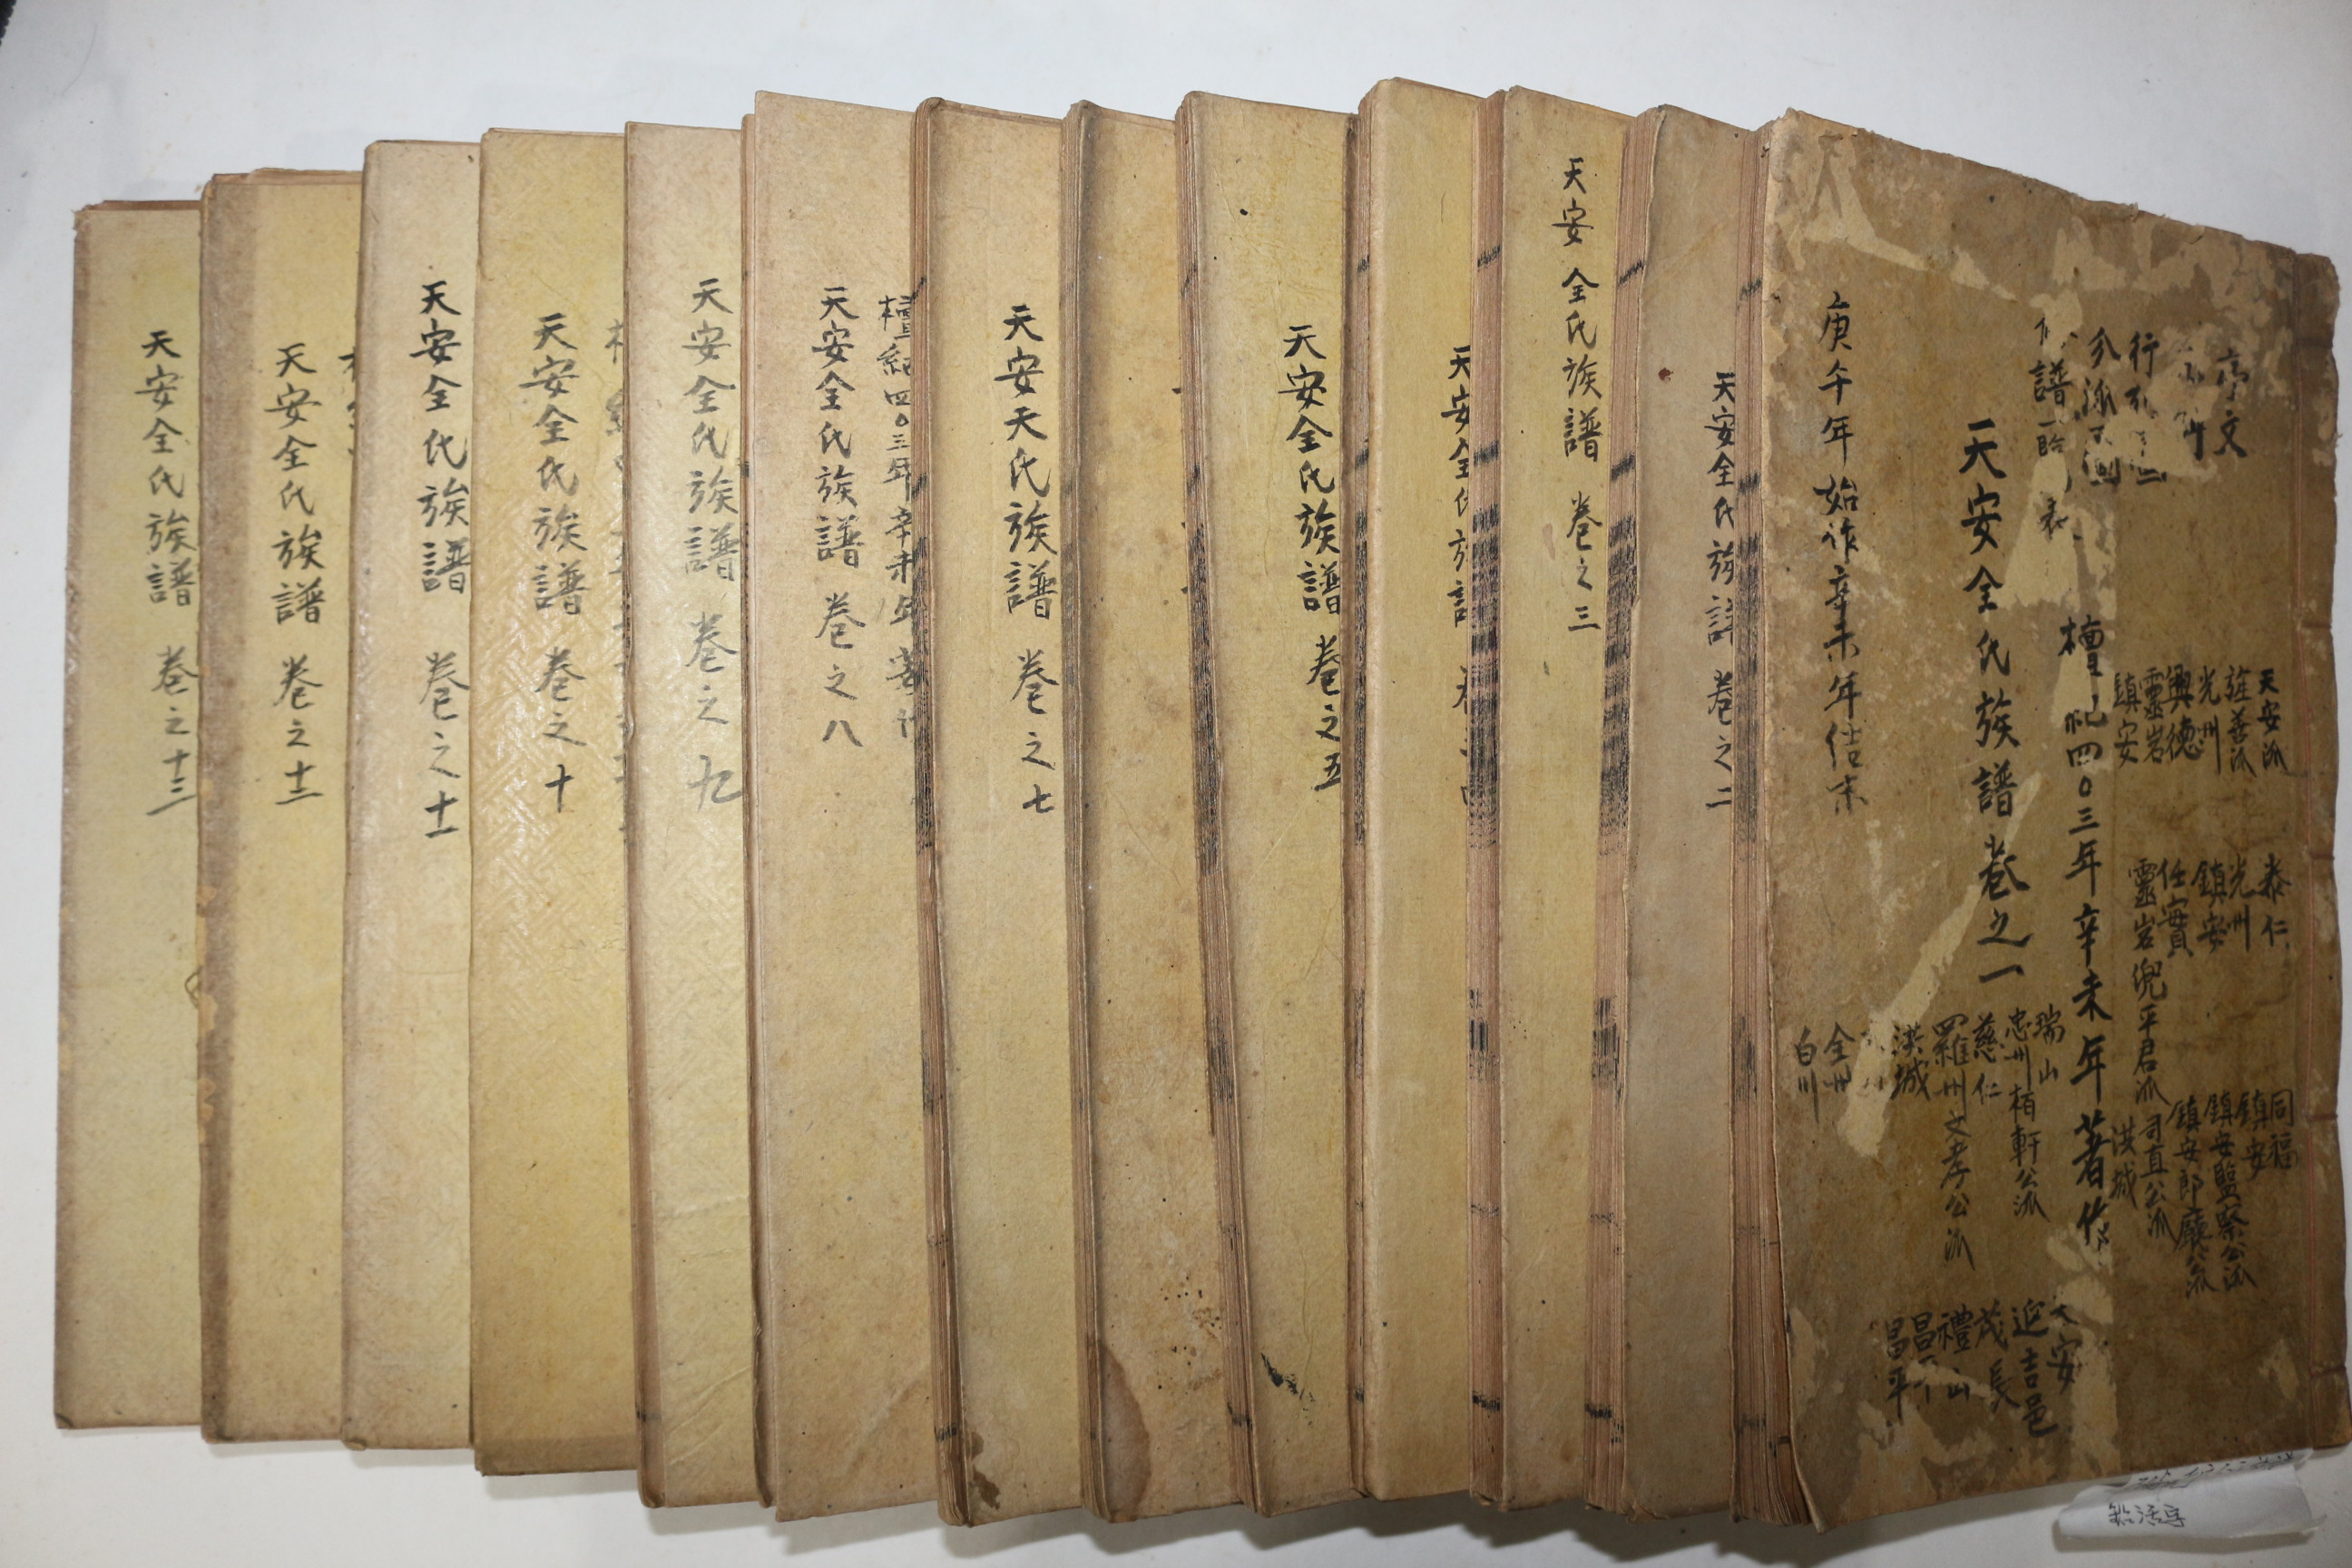 序文
天安派
旌善派
光州
興德
靈岩
鎮安
泰仁
光州
鎮安
任實
靈岩兜平君派
同福
鎮安
鎮安監察公派
鎮安郎廳公派
司直公派
洪城
檀紀四〇三年辛未年著作
天安全氏族譜 卷之一
瑞山
忠州栢軒公派
慈仁
羅州文孝公派
洪城
全州
白川
天安
延吉邑
茂長
禮山
昌平
昌平
庚午年始作辛未年结末
天安全氏族譜 卷之二
天安全氏族譜 卷之三
天安全氏族譜
天安全氏族譜 卷之五
天安天氏族譜 卷之七
檀紀四〇三年辛未年著
天安全氏族譜 卷之八
天安全氏族譜 卷之九
天安全氏族譜 卷之十
天安全氏族譜 卷之十一
天安全氏族譜 卷之十二
天安全氏族譜 卷之十三
鉛活字